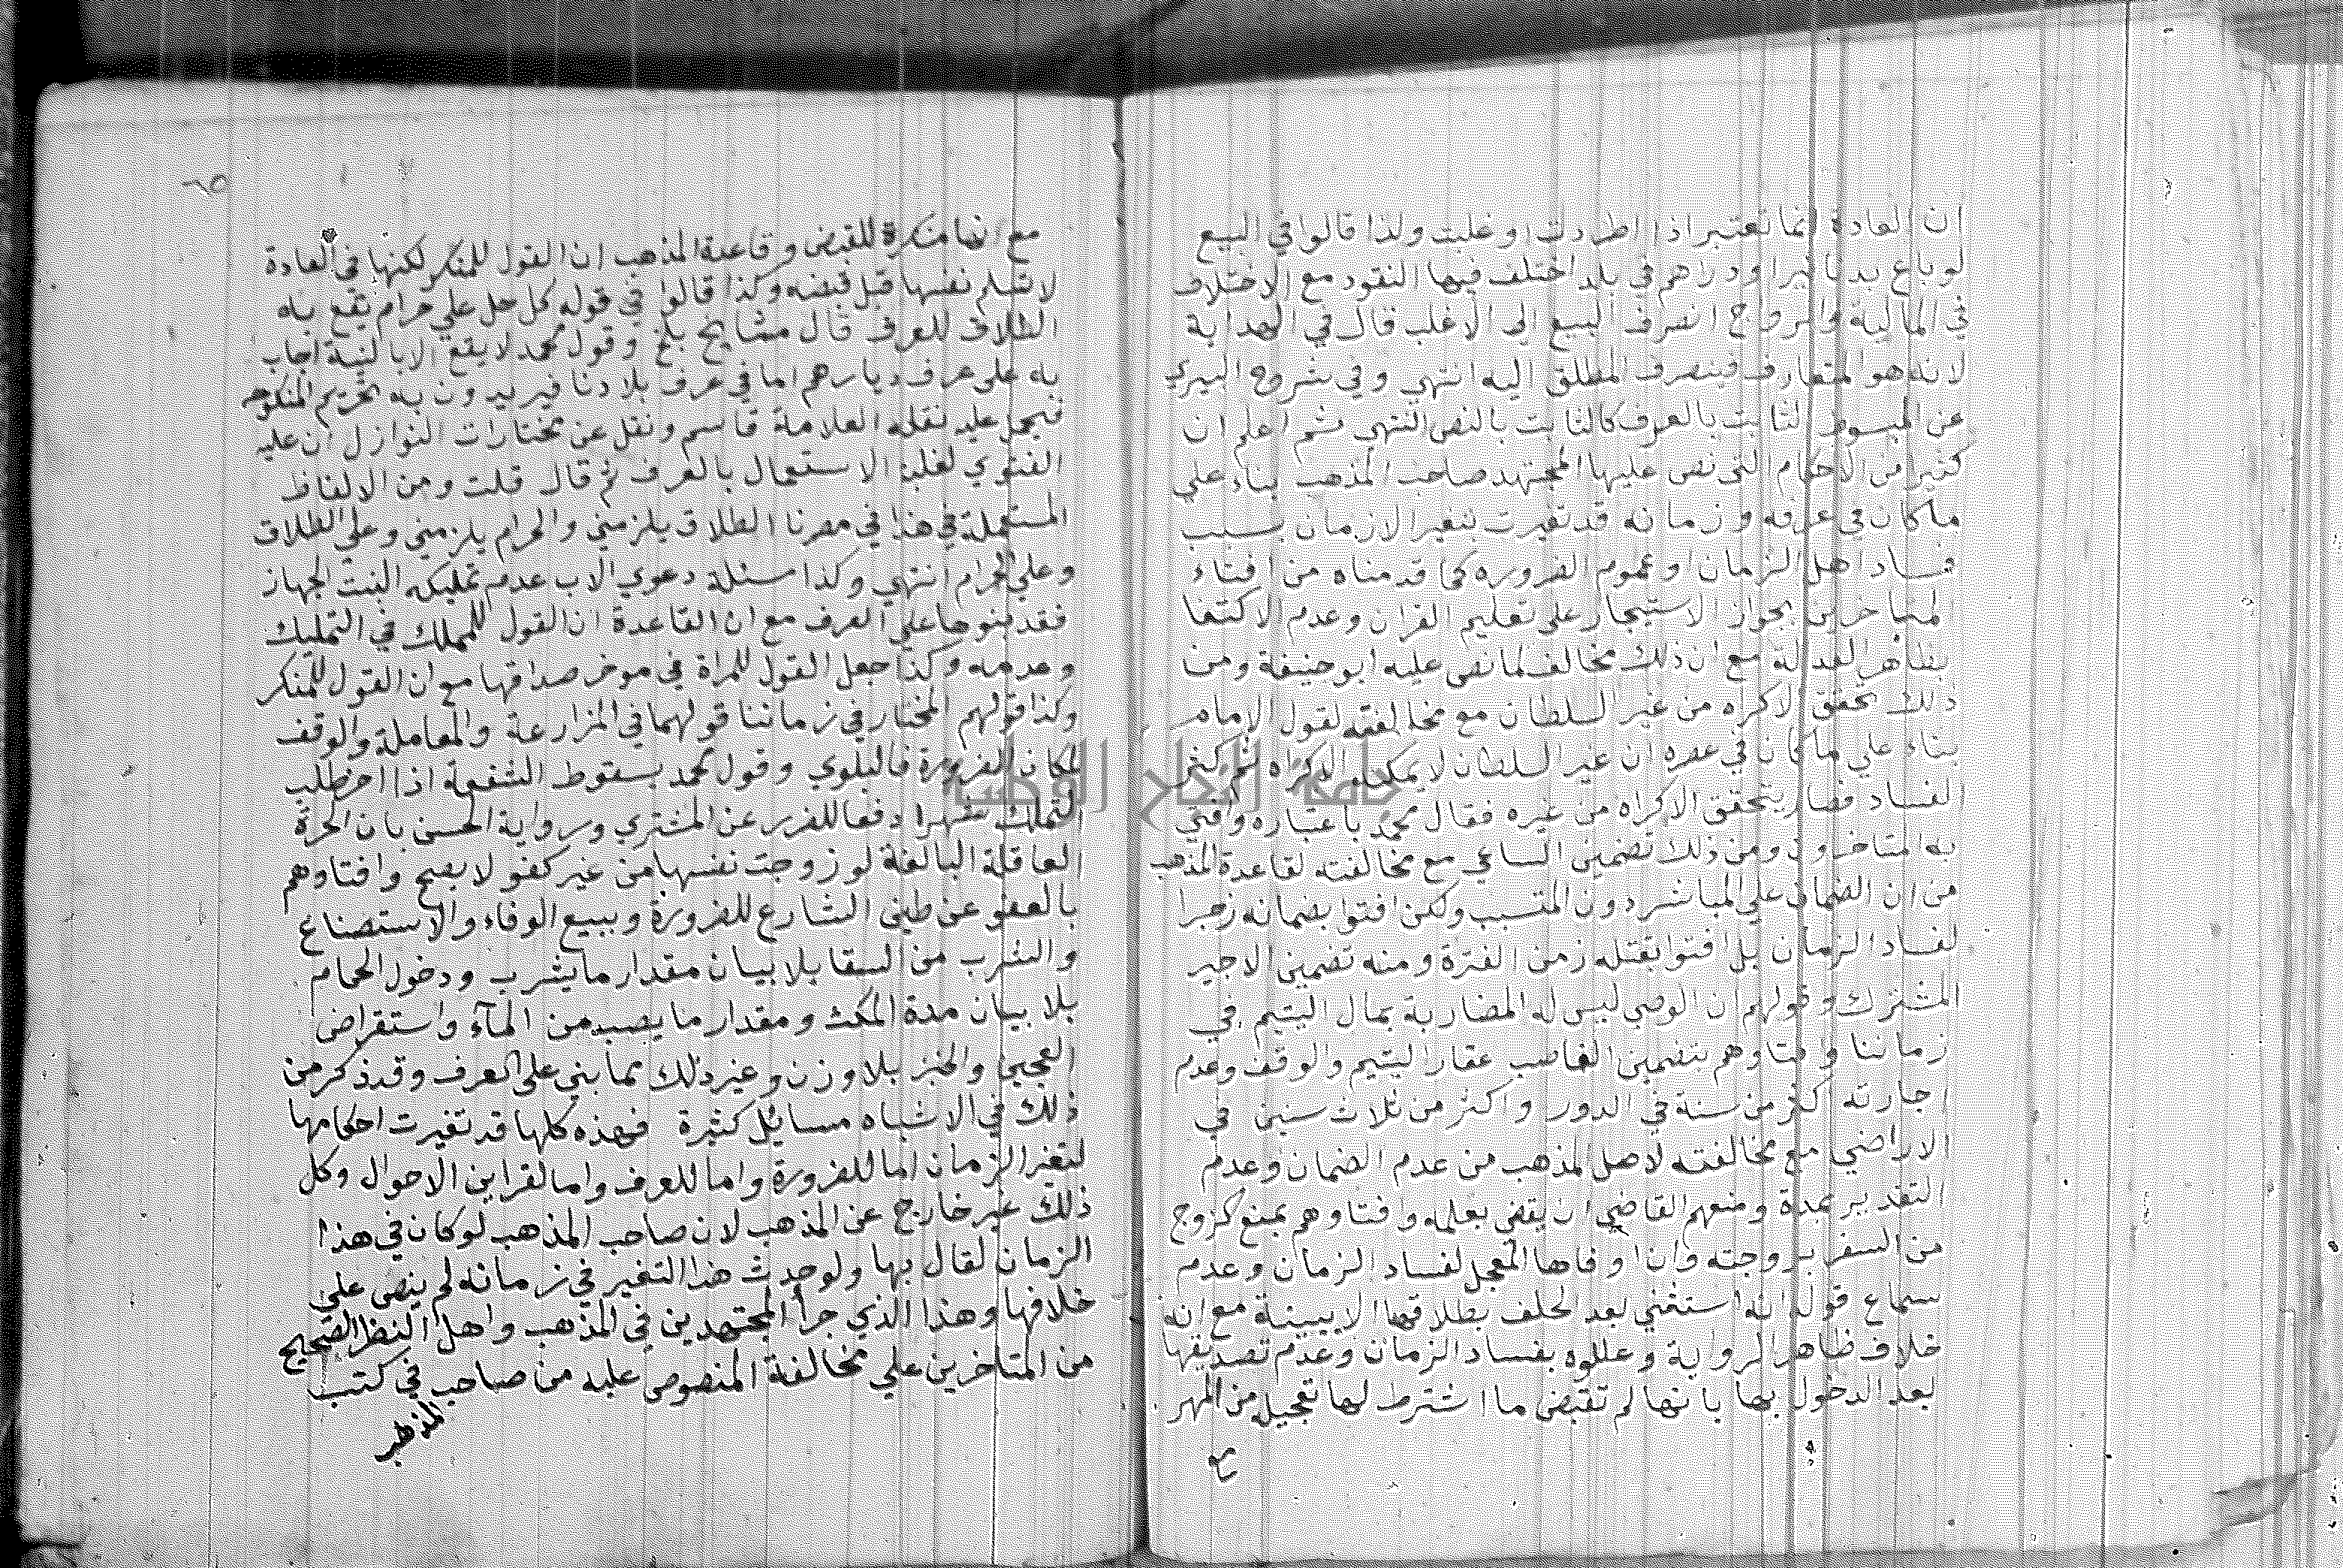 ان العادة انما تعتبر اذا اطردت او غلبت ولذا قالوا في البيع
لو باع بدنانير او دراهم في بلد اختلف فيها النقود مع الاختلاف
في المالية والرواج انصرف البيع الى الاغلب قال في الهداية
لانه هو المتعارف فينصرف المطلق اليه انتهي وفي شروح البيري
عن المبسوط الثابت بالعرف كالثابت بالنص انتهي ثم اعلم ان
كثيرا من الاحكام التي نص عليها المجتهد صاحب المذهب بناء علي
ما كان في عرفه وزمانه قد تغيرت بتغير الازمان بسبب
فساد اهل الزمان او عموم الضرورة كما قدمناه من افتاء
المتاخرين بجواز الاستيجار على تعليم القران وعدم الاكتفا
بظاهر العدالة مع ان ذلك مخالف لما نص عليه ابو حنيفة ومن
ذلك تحقق الاكراه من غير السلطان مع مخالفته لقول الامام
بناء علي ما كان في عصره ان غير السلطان لا يمكنه الاكراه ثم كثر
الفساد فصار يتحقق الاكراه من غيره فقال محمد باعتباره وافتي
به المتاخرون ومن ذلك تضمين الساعي مع مخالفته لقاعدة المذهب
من ان الضمان علي المباشر دون المتسبب ولكن افتوا بضمانه زجرا
لفساد الزمان بل افتوا بقتله زمن الفترة ومنه تضمين الاجير
المشترك وقولهم ان الوصي ليس له المضاربة بمال اليتيم في
زماننا وافتاوهم بتضمين الغاصب عقار اليتيم والوقف وعدم
اجارته اكثر من سنة في الدور واكثر من ثلاث سنين في
الاراضي مع مخالفته لاصل المذهب من عدم الضمان وعدم
التقدير بمدة ومنعهم القاضي ان يقضي بعلمه وافتاوهم بمنع الزوج
من السفر بزوجته وان اوفاها المعجل لفساد الزمان وعدم
سماع قوله انه استثني بعد الحلف بطلاقها الا ببينة مع انه
خلاف ظاهر الرواية وعللوه بفساد الزمان وعدم تصديقها
بعد الدخول بها بانها لم تقبض ما اشترط لها تعجيله من المهر
مع
٦٥
مع انها منكرة للقبض وقاعدة المذهب ان القول للمنكر لكنها في العادة
لا تسلم نفسها قبل قبضه وكذا قالوا في قوله كل حل علي حرام يقع به
الطلاق للعرف قال مشايخ بلخ وقول محمد لا يقع الا بالنية اجاب
به على عرف ديارهم اما في عرف بلادنا فيريدون به تحريم المنكوحه
فيحمل عليه نقله العلامة قاسم ونقل عن مختارات النوازل ان عليه
الفتوي لغلبة الاستعمال بالعرف ثم قال قلت ومن الالفاظ
المستعملة في هذا في مصرنا الطلاق يلزمني والحرام يلزمني وعلي الطلاق
وعلي الحرام انتهي وكذا مسئلة دعوي الاب عدم تمليكه البنت الجهاز
فقد بنوها علي العرف مع ان القاعدة ان القول للمملك في التمليك
وعدمه وكذا جعل القول للمراة في موخر صداقها مع ان القول للمنكر
وكذا قولهم المختار في زماننا قولهما في المزارعة والمعاملة والوقف
لمكان الضرورة فالبلوي وقول محمد بسقوط الشفعة اذا اخر طلب
التملك شهرا دفعا للضرر عن المشتري ورواية الحسن بان الحرة
العاقلة البالغة لو زوجت نفسها من غير كفو لا يصح وافتاوهم
بالعفو عن طين الشارع للضرورة وببيع الوفاء والاستصناع
والشرب من السقا بلا بيان مقدار ما يشرب ودخول الحمام
بلا بيان مدة المكث ومقدار ما يصبه من المآء واستقراض
العجين والخبز بلا وزن وغير ذلك مما بني على العرف وقد ذكر من
ذلك في الاشباه مسايل كثيرة فهذه كلها قد تغيرت احكامها
لتغير الزمان اما للضرورة واما للعرف واما لقراين الاحوال وكل
ذلك غير خارج عن المذهب لان صاحب المذهب لو كان في هذا
الزمان لقال بها ولو حدث هذا التغير في زمانه لم ينص علي
خلافها وهذا الذي جرأ المجتهدين في المذهب واهل النظر الصحيح
من المتاخرين علي مخالفة المنصوص عليه من صاحب في كتب
المذهب
جامعة النجاح الوطنية